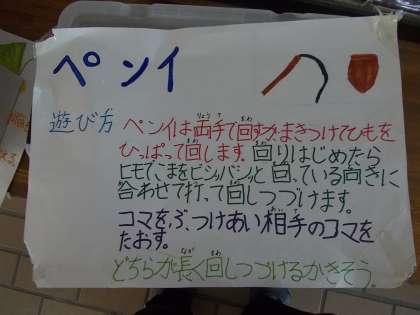 ペンイ
遊び方
ペンイは両手で回すか、まきつけてひもを
ひっぱって回します。回りはじめたら
ヒモで、こまをビシバシと回っている向きに
合わせて打って回しつづけます。
コマをぶつけあい相手のコマを
たおす。
どちらが長く回しつづけるかきそう。